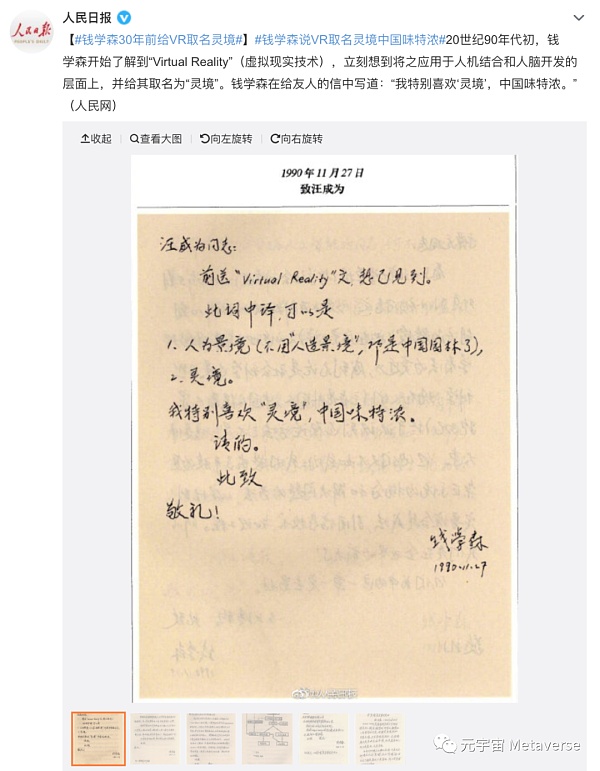 人民日报
PEOPLE'S DAILY
人民日报
【#钱学森30年前给VR取名灵境#】#钱学森说VR取名灵境中国味特浓#20世纪90年代初，钱
学森开始了解到“Virtual Reality”（虚拟现实技术），立刻想到将之应用于人机结合和人脑开发的
层面上，并给其取名为“灵境”。钱学森在给友人的信中写道：“我特别喜欢‘灵境’，中国味特浓。”
（人民网）
收起 查看大图 向左旋转 向右旋转
1990年11月27日
致汪成为
汪成为同志：
前送“Virtual Reality”文想已见到。
此词中译，可以是
1. 人为景境（不用“人造景境”，那是中国园林了），
2. 灵境。
我特别喜欢“灵境”，中国味特浓。
请酌。
此致
敬礼！
钱学森
1990.11.27
@人民日报
元宇宙 Metaverse